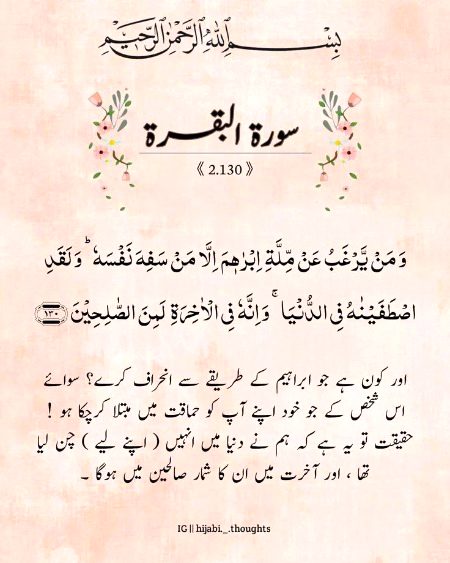 بِسْمِ اللهِ الرَّحْمٰنِ الرَّحِيْمِ
سورة البقرة
《 2.130 》
وَمَنْ يَّرْغَبُ عَنْ مِّلَّةِ اِبْرٰهٖمَ اِلَّا مَنْ سَفِهَ نَفْسَهٗ ؕ وَلَقَدِ
اصْطَفَيْنٰهُ فِى الدُّنْيَا ۚ وَاِنَّهٗ فِى الْاٰخِرَةِ لَمِنَ الصّٰلِحِيْنَ ١٣٠
اور کون ہے جو ابراہیم کے طریقے سے انحراف کرے؟ سوائے
اس شخص کے جو خود اپنے آپ کو حماقت میں مبتلا کرچکا ہو !
حقیقت تو یہ ہے کہ ہم نے دنیا میں انہیں ( اپنے لیے ) چن لیا
تھا ، اور آخرت میں ان کا شمار صالحین میں ہوگا ۔
IG || hijabi._.thoughts